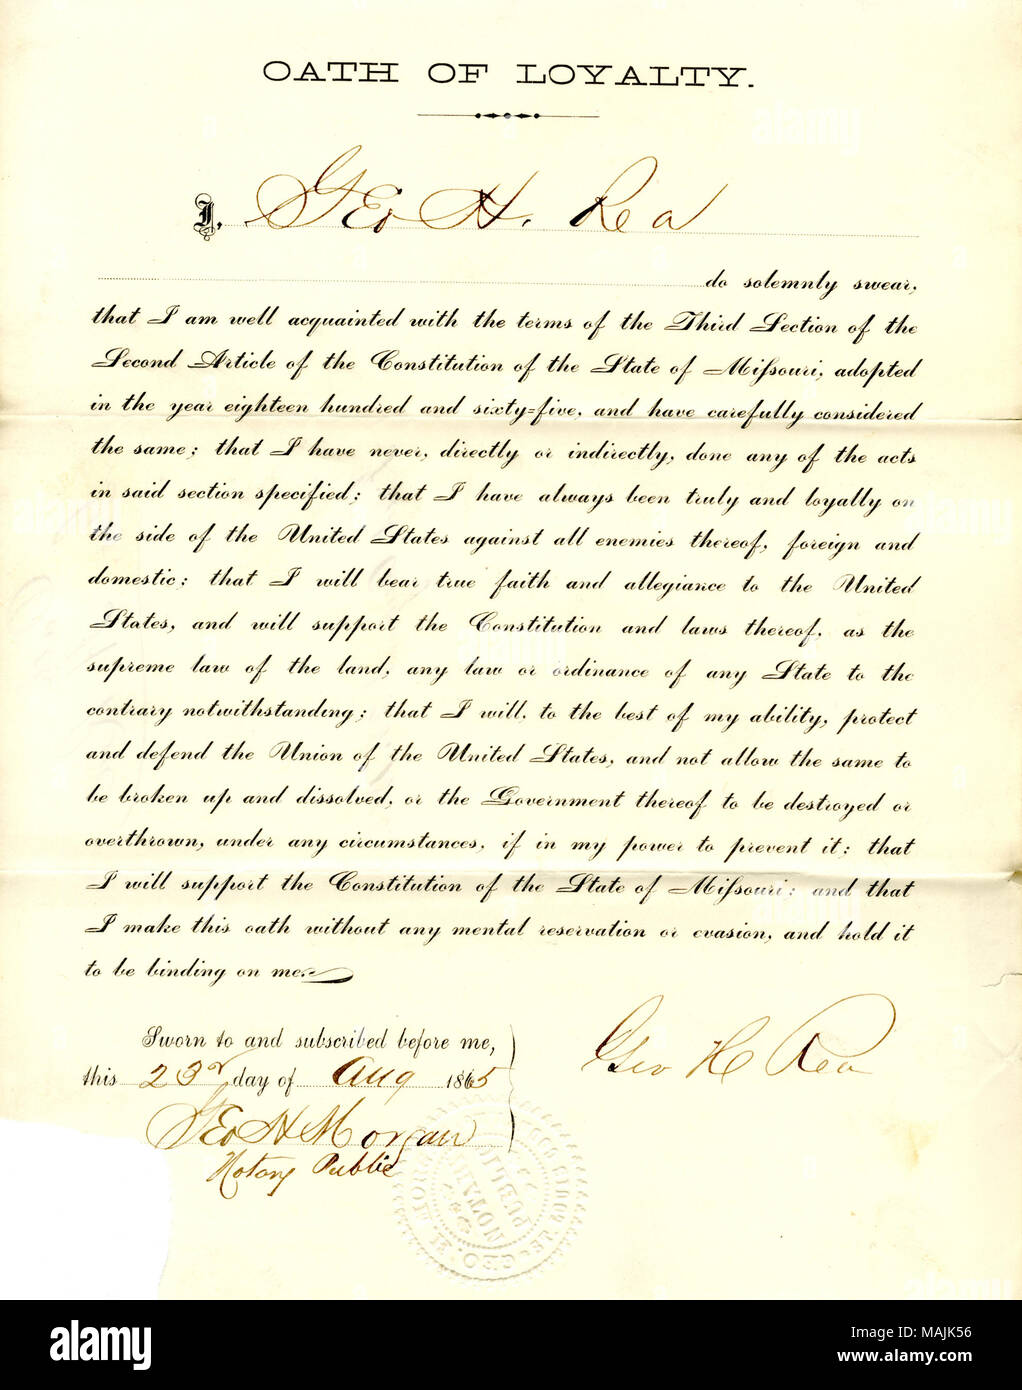 OATH OF LOYALTY.
I, Geo H. Rea
do solemnly swear,
that I am well acquainted with the terms of the Third Section of the
Second Article of the Constitution of the State of Miſsouri, adopted
in the year eighteen hundred and sixty=five, and have carefully considered
the same; that I have never, directly or indirectly, done any of the acts
in said section specified; that I have always been truly and loyally on
the side of the United States against all enemies thereof, foreign and
domestic; that I will bear true faith and allegiance to the United
States, and will support the Constitution and laws thereof, as the
supreme law of the land, any law or ordinance of any State to the
contrary notwithstanding; that I will, to the best of my ability, protect
and defend the Union of the United States, and not allow the same to
be broken up and dissolved, or the Government thereof to be destroyed or
overthrown, under any circumstances, if in my power to prevent it; that
I will support the Constitution of the State of Miſsouri; and that
I make this oath without any mental reservation or evasion, and hold it
to be binding on me.
Sworn to and subscribed before me,
this 23r day of Aug 1865
Geo H Rea
Geo H Morgan
Notary Public
GEO. H. MORGAN ST. LOUIS COUNTY
NOTARY
PUBLIC
alamy
Image ID: MAJK56
www.alamy.com